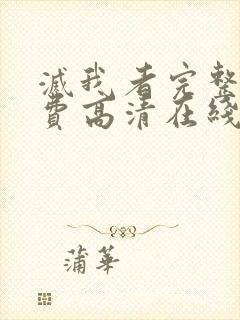 滅我看完整
費高清在綫
蒲華